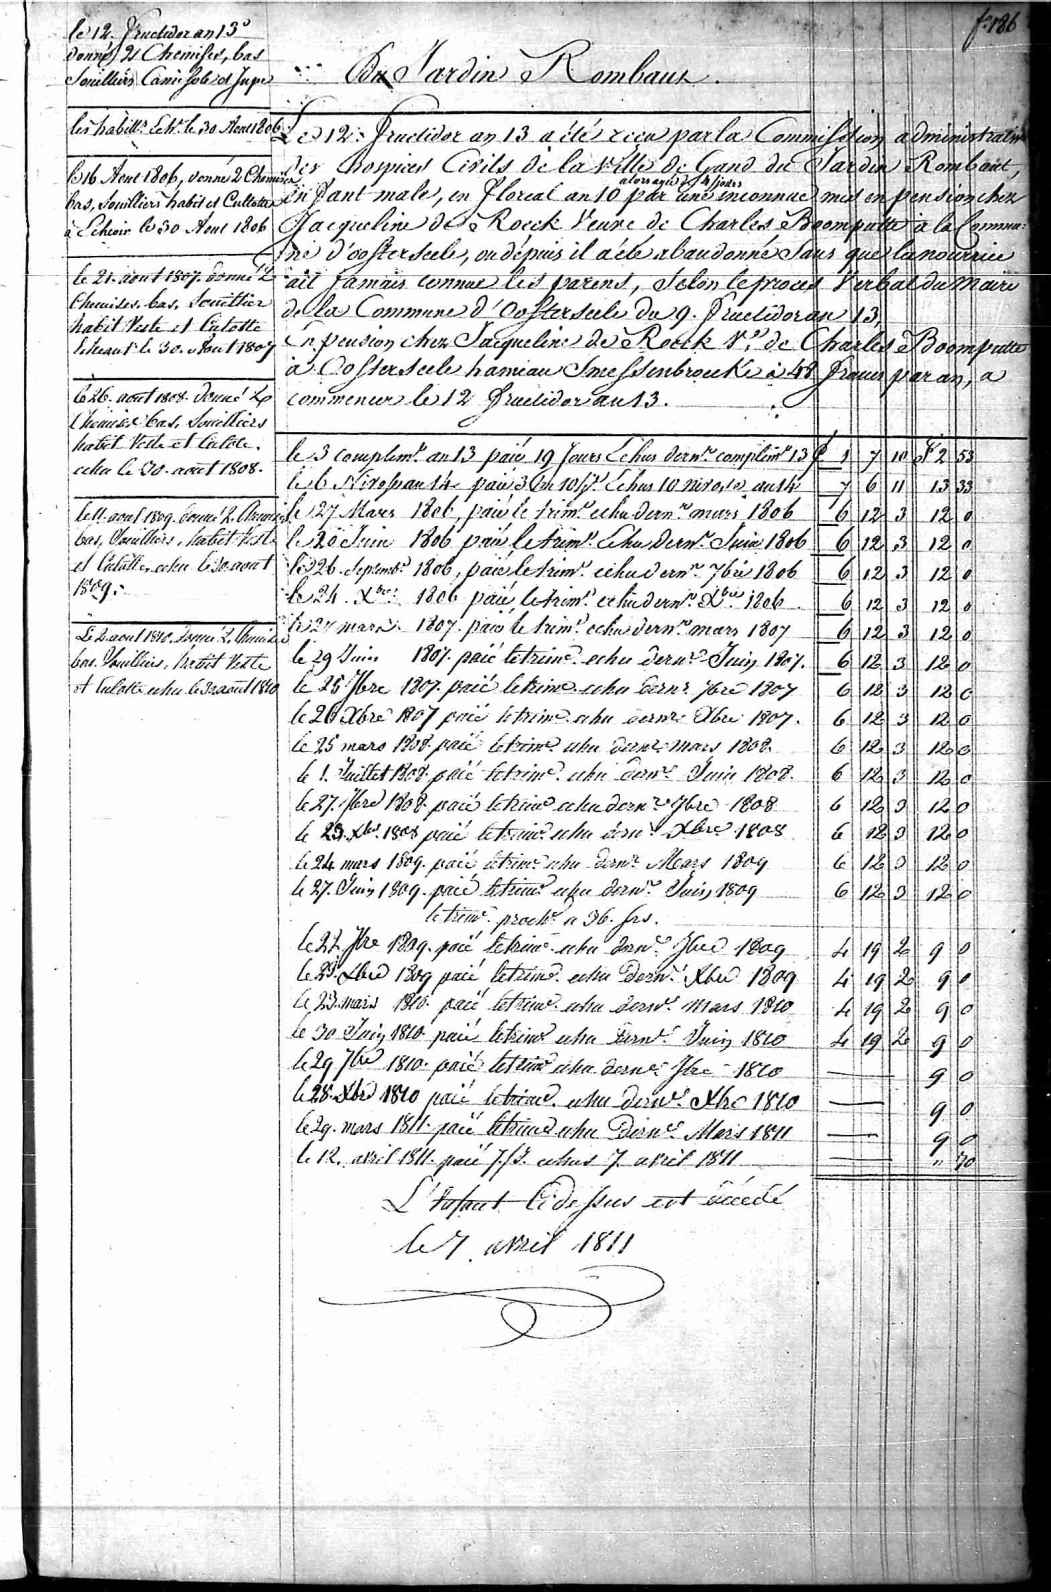 f. 186
le 12. Fructidor an 13
donné 2 Chemises, bas
Souilliers Camisole et Jupe
les habill.s Ech.s le 30 Aout 1806
le 16 Aout 1806, donné 2 Chemises
bas, Souilliers habit et Culotte
à Echeoir le 30 Aout 1806
le 21. août 1807. donné 2
Chemises, bas, Souillier
habit Veste et Culotte
echeant le 30. Août 1807
le 26. aout 1808. donné 2
Chemises bas, Souilliers
habit Veste et Culote.
echu le 30. aout 1808.
le 11. aout 1809. donné 2. Chemises
bas, Souilliers, habit Veste
et Culotte echu le 30. aout
1809.
Le 2. aout 1810. donné 2. Chemises
bas. Souilliers, habit Veste
et Culotte echu le 30 aout 1810
Du Jardin Rombaut.
Le 12. Fructidor an 13 a été recu par la Commission administrative
des Hospices Civils de la Ville de Gand du Jardin Rombaut,
alors agé de 4 jours
Enfant male, en floreal an 10 par une inconnue mis en pension chez
Jacqueline de Roeck Veuve de Charles Boomputte à la Commu-
ne d'oosterseele, ou depuis il a été abandonné Sans que la nourrice
ait jamais connue les parens, Selon le procès Verbal du Maire
de la Commune d'Oosterseele du 9. Fructidor an 13,
En pension chez Jacqueline de Roeck V.e de Charles Boomputte
à Oosterseele hameau Smessenbroeck à 48 francs par an, a
commencer le 12 Fructidor an 13.
le 3 complim.e an 13 paié 19 Jours Echus dern.r complim.e 13 £ 1 7 10 F 2 53
le 6 Nivose an 14 paié 3 m 10 J.s Echus 10 nivose an 14 7 6 11 13 33
le 27 Mars 1806, paié le trim.e echu dern.r mars 1806 6 12 3 12 0
le 20 Juin 1806 paié le trim.e Echu Dern.r Juin 1806 6 12 3 12 0
le 26. Septemb.e 1806, paié le trim.e echu dern.r 7bre 1806 6 12 3 12 0
le 24. Xbre 1806 paié le trim.e echu dern.r Xbre 1806 6 12 3 12 0
le 27 mars. 1807. paié le trim.e echu dern.r mars 1807 6 12 3 12 0
le 29 Juin 1807. paié le trim.e echu dern.r Juin 1807. 6 12 3 12 0
le 25 7bre 1807. paié le trim.e echu dern.r 7bre 1807 6 12 3 12 0
le 26 Xbre 1807 paié le trim.e echu dern.r Xbre 1807. 6 12 3 12 0
le 25 mars 1808. paié le trim.e echu dern.r mars 1808. 6 12 3 12 0
le 1. Juillet 1808. paié le trim.e echu dern.r Juin 1808. 6 12 3 12 0
le 27. 7bre 1808. paié le trim.e echu dern.r 7bre 1808 6 12 3 12 0
le 23. Xbre 1808 paié le trim.e echu dern.r Xbre 1808 6 12 3 12 0
le 24 mars 1809. paié le trim.e echu dern.r Mars 1809 6 12 3 12 0
le 27. Juin 1809. paié le trim.e echu dern.r Juin 1809 6 12 3 12 0
le trim.e proch.n a 36. frs.
le 22 7bre 1809. paié le trim.e echu dern.r 7bre 1809 4 19 2 9 0
le 23. Xbre 1809 paié le trim.e echu Dern.r Xbre 1809 4 19 2 9 0
le 23. mars 1810. paié le trim.e echu dern.r mars 1810 4 19 2 9 0
le 30 Juin 1810. paié le trim.e echu dern.r Juin 1810 4 19 2 9 0
le 29 7bre 1810. paié le trim.e echu dern.r 7bre 1810 9 0
le 28. Xbre 1810 paié le trim.e echu dern.r Xbre 1810 9 0
le 29. mars 1811. paié le trim.e echu Dern.r Mars 1811 9 0
le 12. avril 1811. paié 7. J.s echus 7 avril 1811 " 70
L'Enfant Cidessus est décédé
le 7. avril 1811